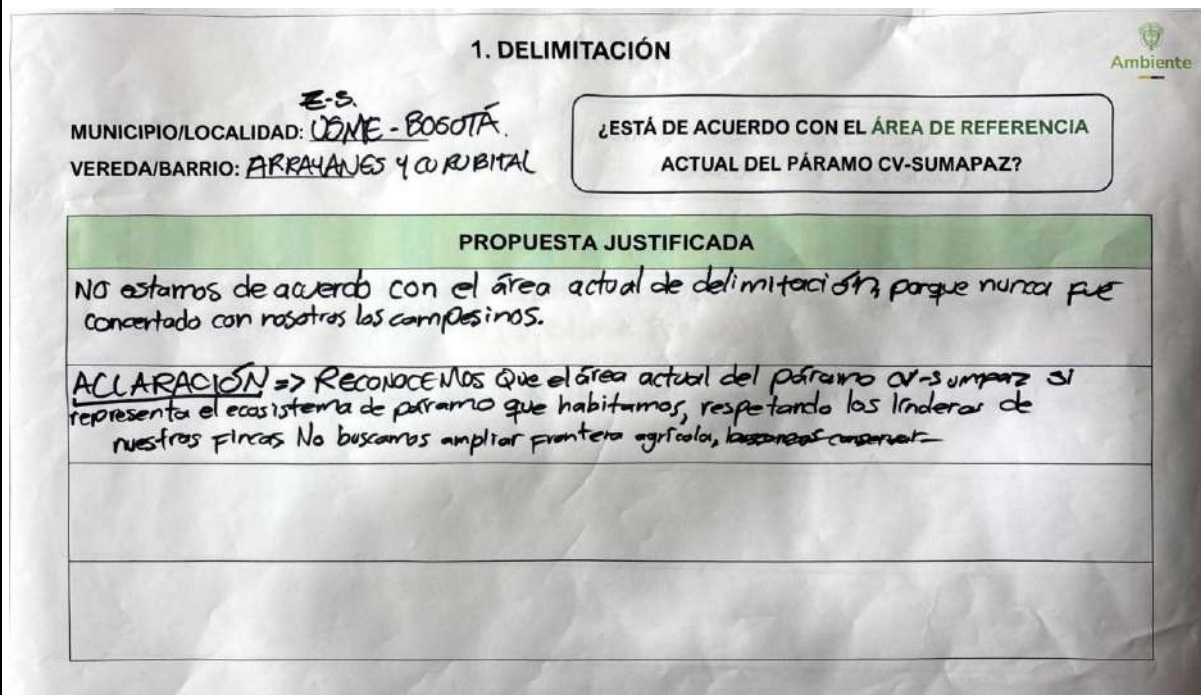 1. DELIMITACIÓN
Ambiente
Z-S.
MUNICIPIO/LOCALIDAD: USME - BOGOTÁ.
VEREDA/BARRIO: ARRAYANES Y CURUBITAL
¿ESTÁ DE ACUERDO CON EL ÁREA DE REFERENCIA
ACTUAL DEL PÁRAMO CV-SUMAPAZ?
PROPUESTA JUSTIFICADA
NO estamos de acuerdo con el área actual de delimitación, porque nunca fue
concertado con nosotros los campesinos.
ACLARACIÓN => RECONOCEMOS Que el área actual del páramo CV-Sumpaz si
representa el ecosistema de páramo que habitamos, respetando los linderos de
nuestras fincas No buscamos ampliar frontera agrícola, buscamos conservar